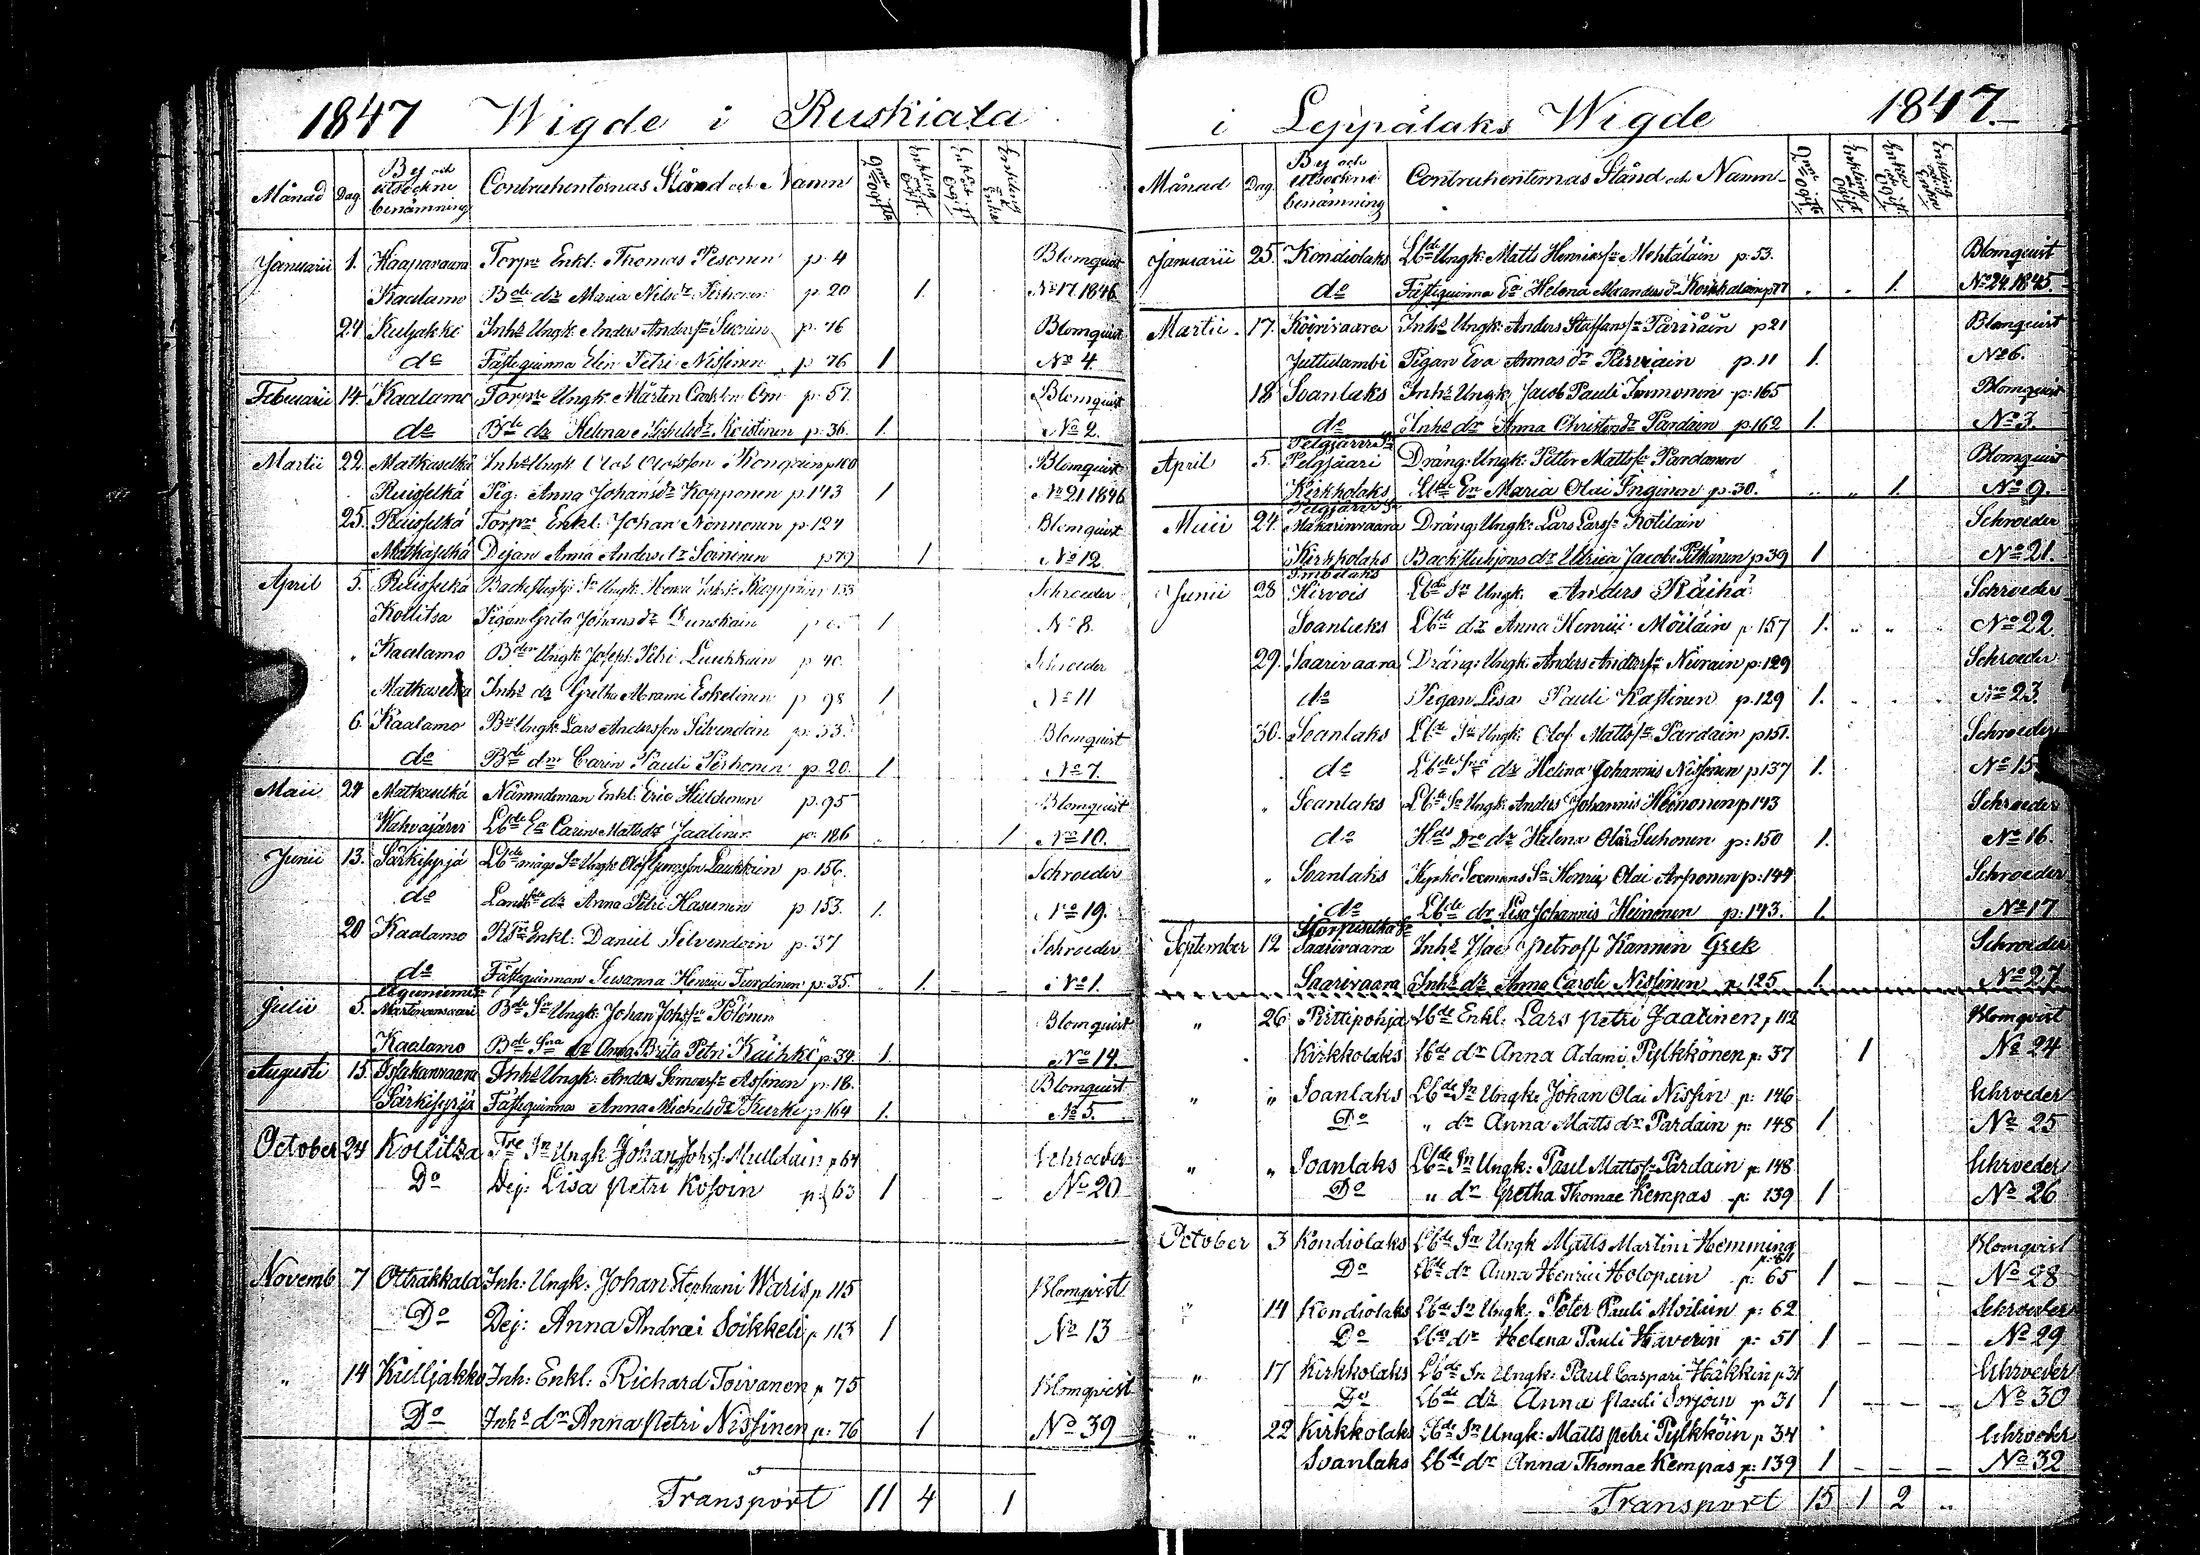 1847 Wigde i Ruskiala
Månad Dag By och utsockne benämning Contrahenternas Stånd och Namn
Januarii 1. Kaaparaara Torpr Enkl: Thomas Pesonen p. 4 Blomquist
Kaalamo Bde dr Maria Nilsdr Perhonen p. 20 1. No 17. 1846
24 Kuljakko Inhs Ungk: Anders Anderss: p. 76 Blomquist
do Fästequinna Elin Petri Nissinen p. 76 1 No 4.
Februarii 14. Kaalamo Torpr Ungk: Mårten p. 57. Blomquist
do Bde dr Helena Michelsdr Koistinen p. 36. 1. No 2.
Martii 22. Matkaselkä Inhs Ungk: Olof Olofsson p 100 Blomquist
Ruisselkä Pig: Anna Johansdr Kopponen p. 143 1 No 21 1846
25. Ruisselkä Torpr Enkl: Johan Nonnonen p. 124 Blomquist
Matkaselkä Dejan Anna Andersdr Soininen p 79 1 No 12
April 5. Ruisselkä Ungk: Schroeder
Kollitsa Pigan Greta Johansdr 1 No 8.
Kaalamo Bdes Ungk: Joseph Petri Luukkain p 40. Schroeder
Matkaselkä Inhs dr Gretha Abrami Eskelinen p 98 1 No 11
6 Kaalamo Bdes Ungk: Lars Andersson Silvendoin p. 33. Blomquist
do Bde dr Carin Pauli Perhonen p. 20. 1 No 7.
Maii 24 Matkaselkä Nämndeman Enkl: Eric Hilldonen p. 95 Blomquist
Wahvajärvi Lbde Ea Carin Mattsdr Jaatinen p. 186 1 No 10.
Junii 13. Särkisyrjä Lbdes måge Sn Ungk: Olof Laukkain p. 156. Schroeder
do Landbde dr Anna Petri Hasunen p 153. 1. No 19.
20 Kaalamo Enkl: Daniel Silvendoin p. 37 Schroeder
do Fästequinnan Susanna Henrici Turdinen p: 35. 1. No 1.
Julii 5. Bde Sn Ungk: Johan Johss: Polönen Blomquist
Kaalamo Bde dr Anna Brita Petri Käihkö p. 34. 1. No 14.
Augusti 15. Inhs Ungk: Anders Assinen p. 18. Blomquist
Särkisyrjä Fästequinna Anna Michelsdr Kurki p 164 1. No 5.
October 24 Kollitza Tre Sn Ungk Johan Johss: Mulldain p 64 Schroeder
Do Dej: Lisa Petri Kosoin p: 63 1 No 20
Novemb 7 Otrakkala Inh: Ungk: Johan Stephani Waris p 115 Blomqvist
Do Dej: Anna Andræi Soikkeli p 113 1 No 13
" 14 Kulljakko Inh: Enkl: Richard Toivanen p 75 Blomqvist
Do Inhs dr Anna Petri Nissinen p: 76 1 No 39
Transport 11 4 1
i Leppälaks Wigde 1847.
Månad Dag. By och utsockne benämning Contrahenternas Stånd och Namn
Januarii 25. Kondiolaks Lbde Ungk: Matts Henrikss: Mehtäläin p: 53. Blomquist
do Fästequinna Ea Helena 1. No 24. 1845.
Martii. 17. Inhs Ungk: Anders Staffanss: p 21 Blomquist
Juttulambi Pigan Eva Annas dr p. 11 1. No 6.
18 Soanlaks Inhs Ungk: Jacob Pauli Immonen p: 165 Blomquist
do Inhs dr Anna Pardain p. 162 1. No 3.
April 5. Pelgjärvi Sn Pelgjäari Dräng: Ungk: Petter Mattss: Pardanen Blomquist
Kirkkolaks Lbde Ea Maria Olai Inginen p. 30. 1. No 9.
Maii 24. Pelgjärvi Sn Makarinvaara Dräng: Ungk: Lars Larss: Kotilain Schroeder
Kirkkolaks dr Ulrica Jacobi Pitkänen p 39 1 No 21.
Junii 28 Imbilaks Hirvois Lbde Sn Ungk: Anders Räihä Schroeder
Soanlaks Lbde dr Anna Henrici Möiläin p 157 1. No 22.
29. Saarivaara Dräng: Ungk: Anders Anderss: p: 129 Schroeder
do Pigan Lisa Pauli Kastinen p. 129 1. No 23.
30. Soanlaks Lbde Sn Ungk: Olof Mattss: Pardain p 151. Schroeder
do Lbde dr Helena Johannis Nissinen p 137 1. No 15
" Soanlaks Lbde Sn Ungk: Anders Johannis Heinonen p 143 Schroeder
do dr Helena Olai Suhonen p: 150 1. No 16.
" Soanlaks Sn Henric Olai Arponen p: 144 Schroeder
do Lbde dr Lisa Johannis Heinonen p: 143. 1. No 17
September 12 Saarivaara Inhs Petroff Kannin Grek Schroeder
Saarivaara Inhs dr Anna Caroli Nissinen p 125 1. No 27
" 26 Pirttipohja Lbde Enkl: Lars Petri Jaatinen p 112 Blomqvist
Kirkkolaks Lbde dr Anna Adami Pylkkönen p: 37 1 No 24
" " Soanlaks Lbde Sn Ungk: Johan Olai Nissin p: 146 Schroeder
Do " dr Anna Matts dr Pardain p: 148 1 No 25
" " Soanlaks Lbde Sn Ungk: Paul Mattss: Pärdain p. 148 Schroeder
Do " dr Gretha Thomae Kempas p: 139 1 No 26
October 3 Kondiolaks Lbde Sn Ungk Matts Martini Hemming Blomqvist
Do Lbde dr Anna Henrici Holopain p: 65 1 No 28
" 14 Kondiolaks Lbde Sn Ungk: Peter Pauli Moilain p: 62 Schroeder
Do Lbde dr Helena Pauli Haverin p: 51 1 No 29
" 17 Kirkkolaks Lbde Sn Ungk: Paul Caspari Häkkin p 31 Schroeder
Do Lbde dr Anna Pauli Sorjoin p 31 1 No 30
" 22 Kirkkolaks Lbde Sn Ungk: Matts Petri Pylkköin p 34 Schroeder
Soanlaks Lbde dr Anna Thomae Kempas p: 139 1 No 32
Transport 15 1 2 "